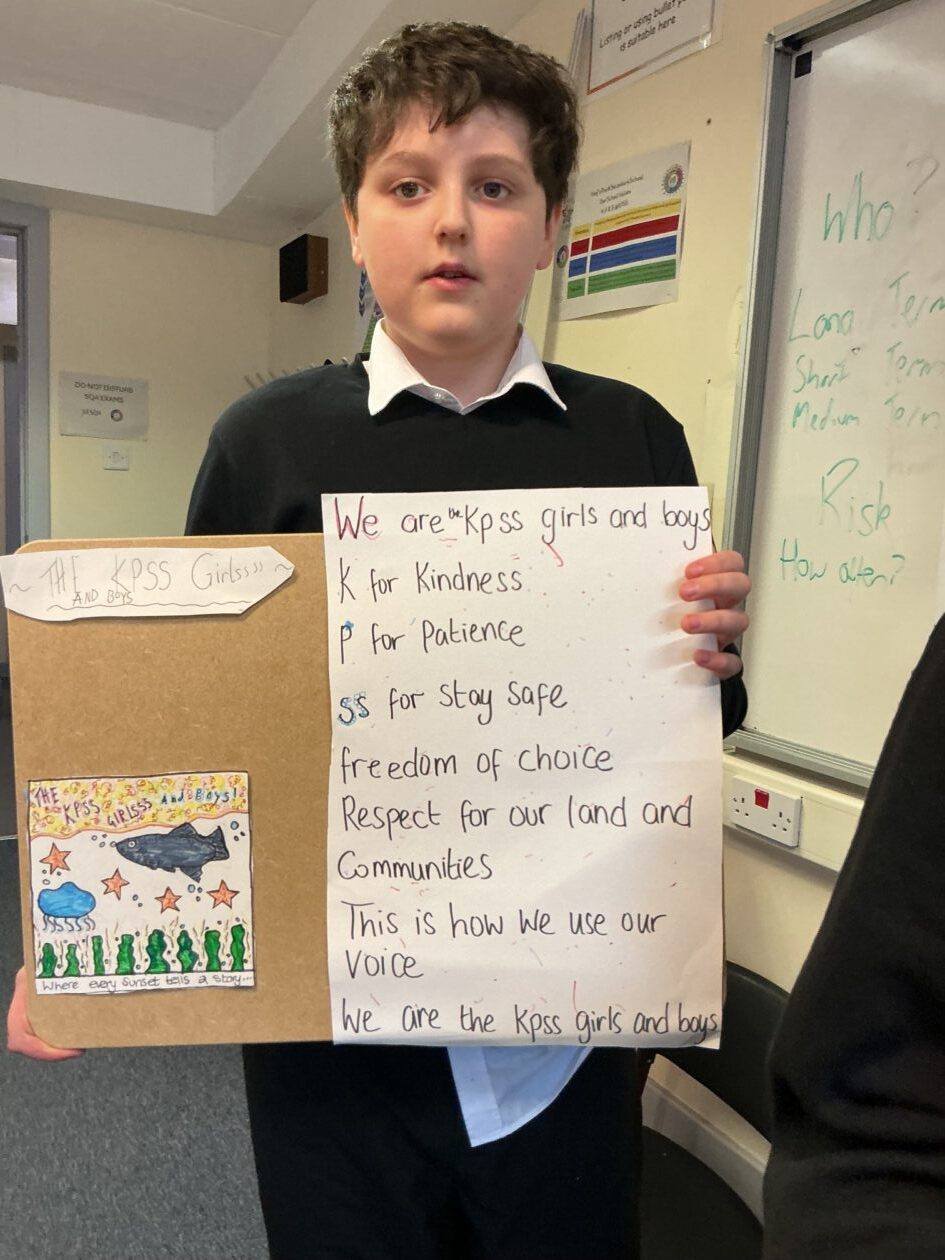 Listing or using bullet
is suitable here
Who?
Long Term
Short Term
Medium Term
Risk
How often?
DO NOT DISTURB
SQA EXAMS
We are the Kpss girls and boys
K for Kindness
P for Patience
SS for Stay Safe
freedom of choice
Respect for our land and
Communities
This is how we use our
Voice
We are the Kpss girls and boys
THE KPSS Girlssss
AND BOYS
THE KPSS GIRLSSS And Boys!
Where every sunset tells a story...